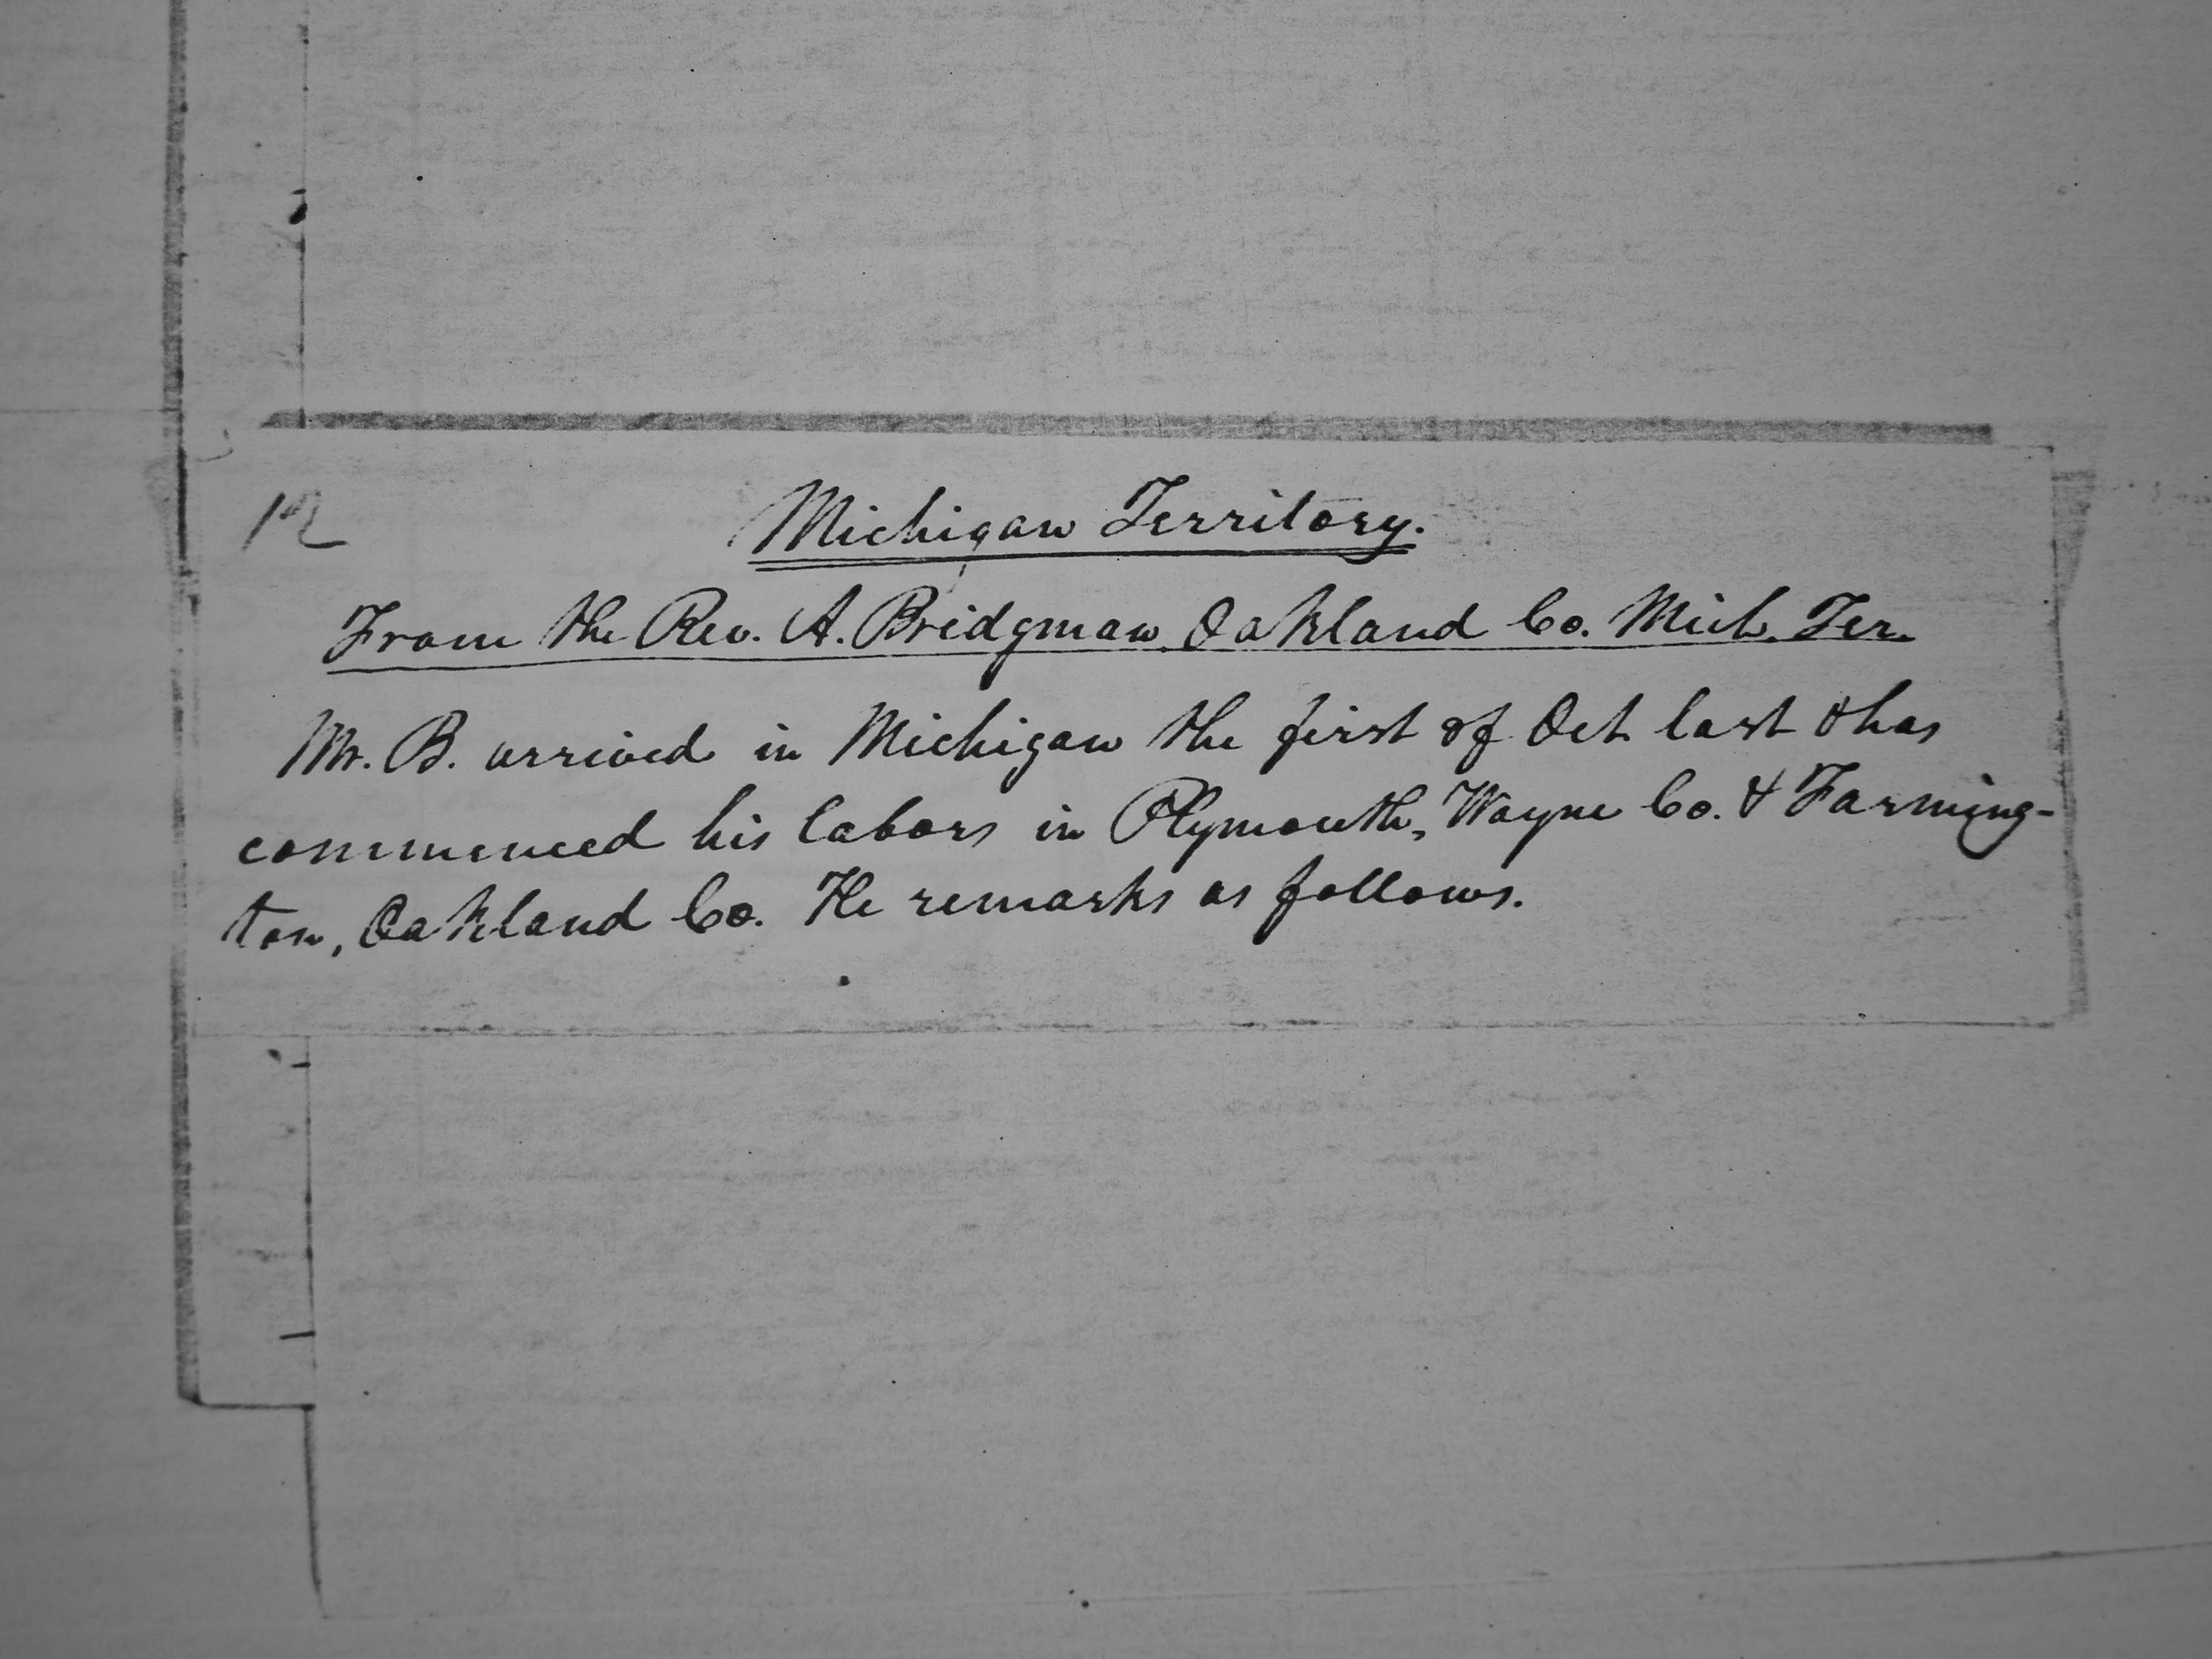 12
Michigan Territory.
From the Rev. A. Bridgman Oakland Co. Mich. Ter.
Mr. B. arrived in Michigan the first of Oct last & has
commenced his labors in Plymouth, Wayne Co. & Farming-
ton, Oakland Co. He remarks as follows.